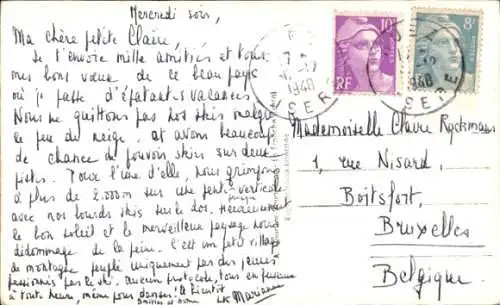 Mercredi soir,
Ma chère petite Claire,
Je t'envoie mille amitiés et tous
mes bons vœux de ce beau pays
où je passe d'épatantes vacances.
Nous ne quittons pas nos skis malgré
le peu de neige, et avons beaucoup
de chance de pouvoir skier sur deux
pistes. Pour l'une d'elle, nous grimpons
à plus de 2.000m sur une pente verticale
avec nos lourds skis sur le dos. Heureusement
le bon soleil et le merveilleux paysage nous
dédommage de la peine. C'est un petit village
de montagne peuplé uniquement par des jeunes
passionnés par le ski. aucun protocole, tous en fuseaux
à toute heure, même pour danser! A bientôt
Marianne
10F
RF
8F
1948
ISERE
1948
ISERE
Mademoiselle Claire Ryckmans
1, rue Nisard,
Boitsfort,
Bruxelles
Belgique